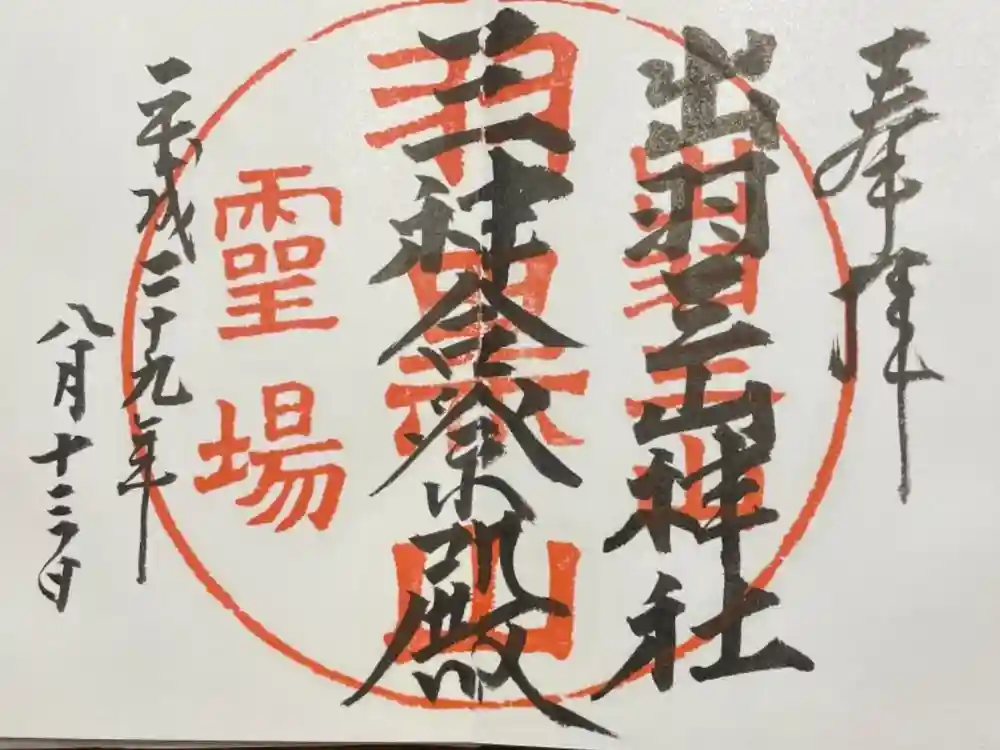 奉拝
出羽三山神社
出羽三山
三社合祭殿
羽黒山
靈場
平成二十九年
八月十二日